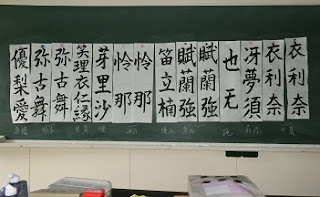 衣利奈
冴夢須
也无
賦蘭強
賦蘭強
笛立楠
怜那
怜那
芽里沙
笑理衣仁縁
弥古舞
弥古舞
優梨愛